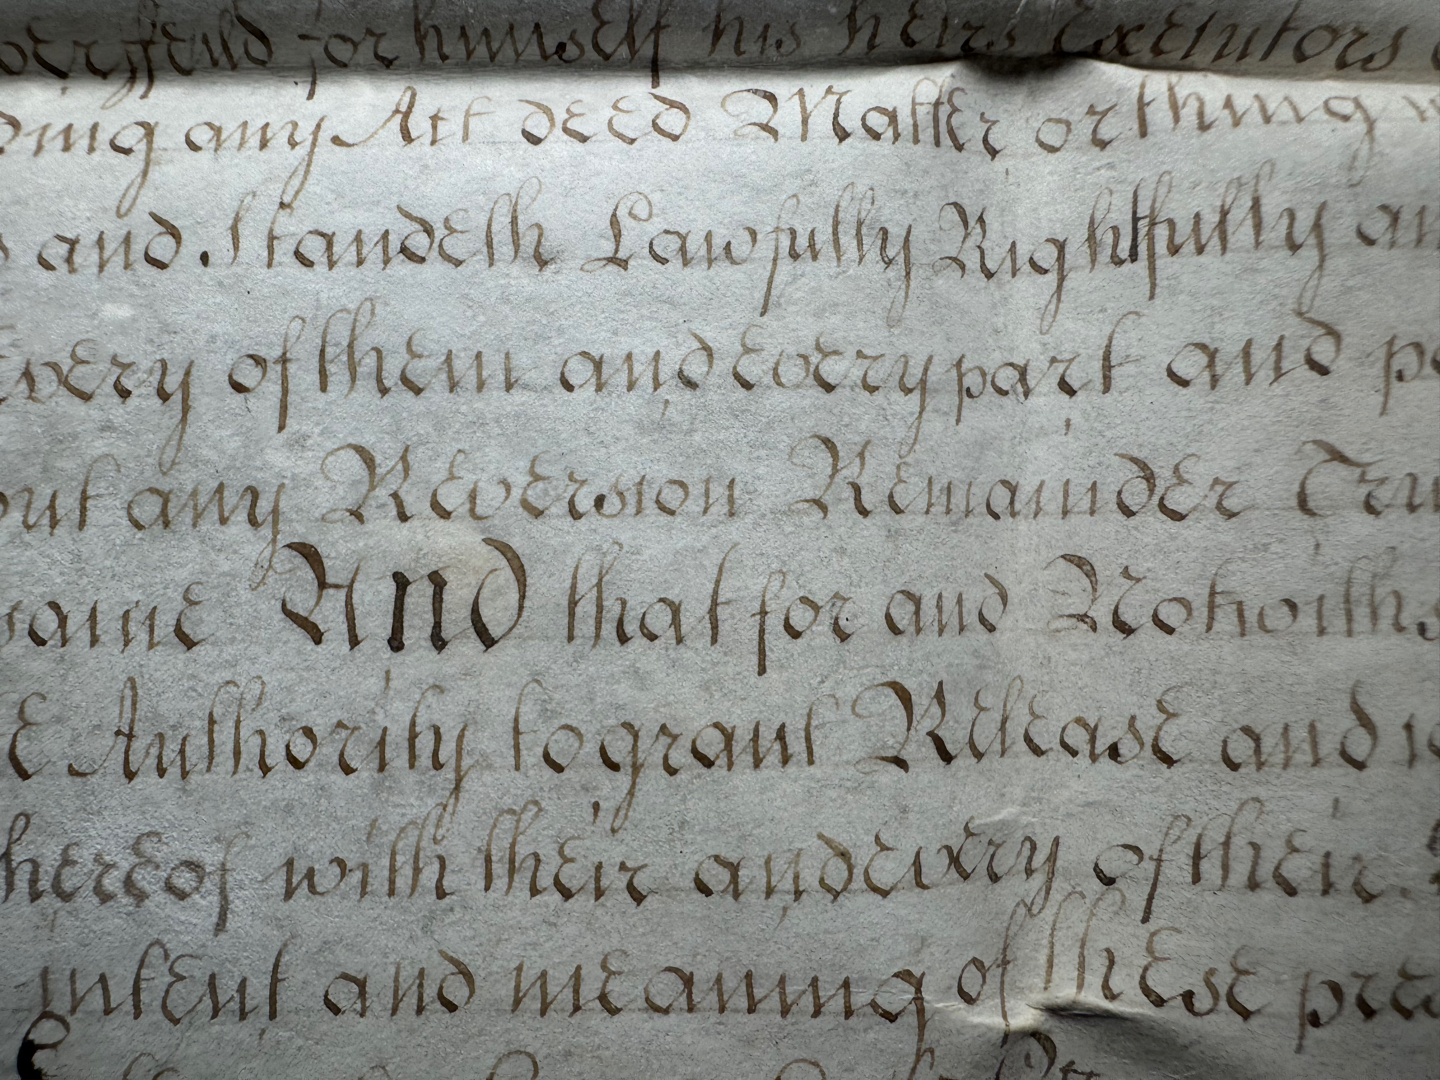 for himself his heirs Executors
any Act deed Matter or thing
and Standeth Lawfully Rightfully
Every of them and every part and
any Reversion Remainder
same And that for and
Authority to grant Release and
hereof with their and every of their
intent and meaning of these